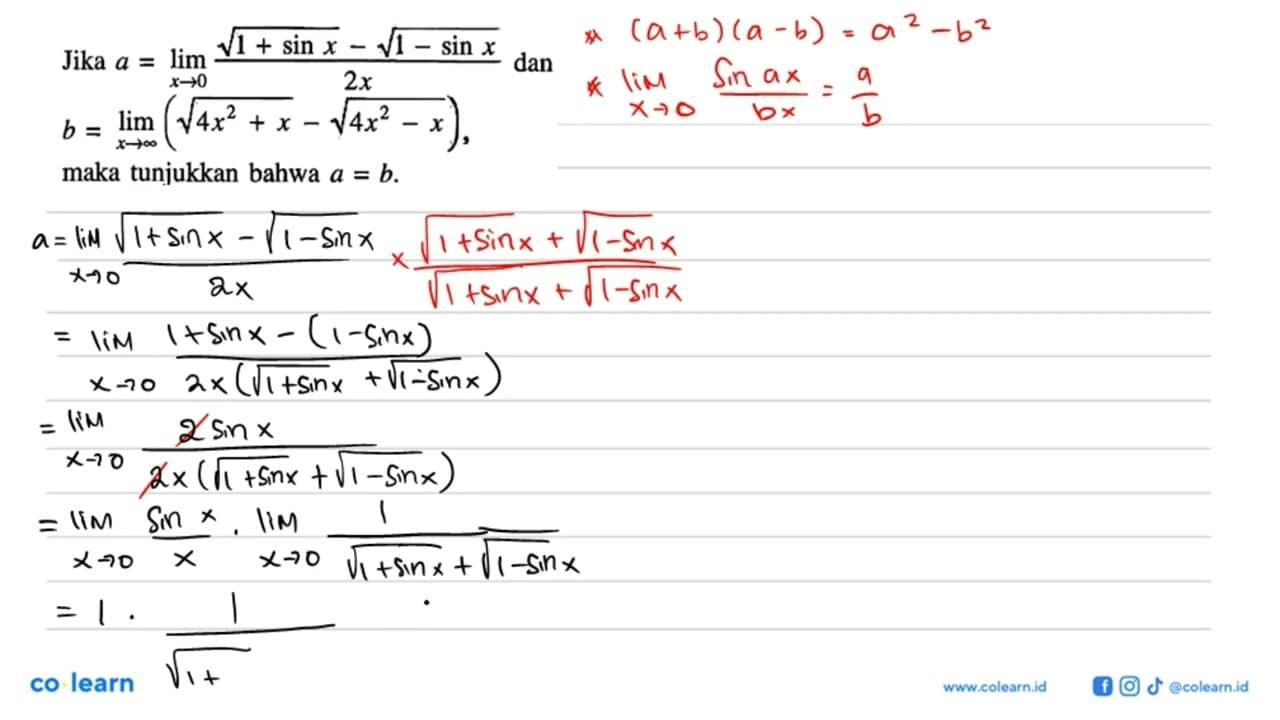 Jika a = lim x→0 (√(1 + sin x) − √(1 − sin x)) / 2x dan
b = lim x→∞ (√(4x² + x) − √(4x² − x)),
maka tunjukkan bahwa a = b.
* (a+b)(a-b) = a² - b²
* lim x→0 sin ax / bx = a / b
a = lim x→0 (√(1+sin x) - √(1-sin x)) / 2x × (√(1+sin x) + √(1-sin x)) / (√(1+sin x) + √(1-sin x))
= lim x→0 (1+sin x - (1-sin x)) / 2x(√(1+sin x) + √(1-sin x))
= lim x→0 2 sin x / 2x(√(1+sin x) + √(1-sin x))
= lim x→0 sin x / x . lim x→0 1 / (√(1+sin x) + √(1-sin x))
= 1 . 1 / √1+
co learn
www.colearn.id
@colearn.id